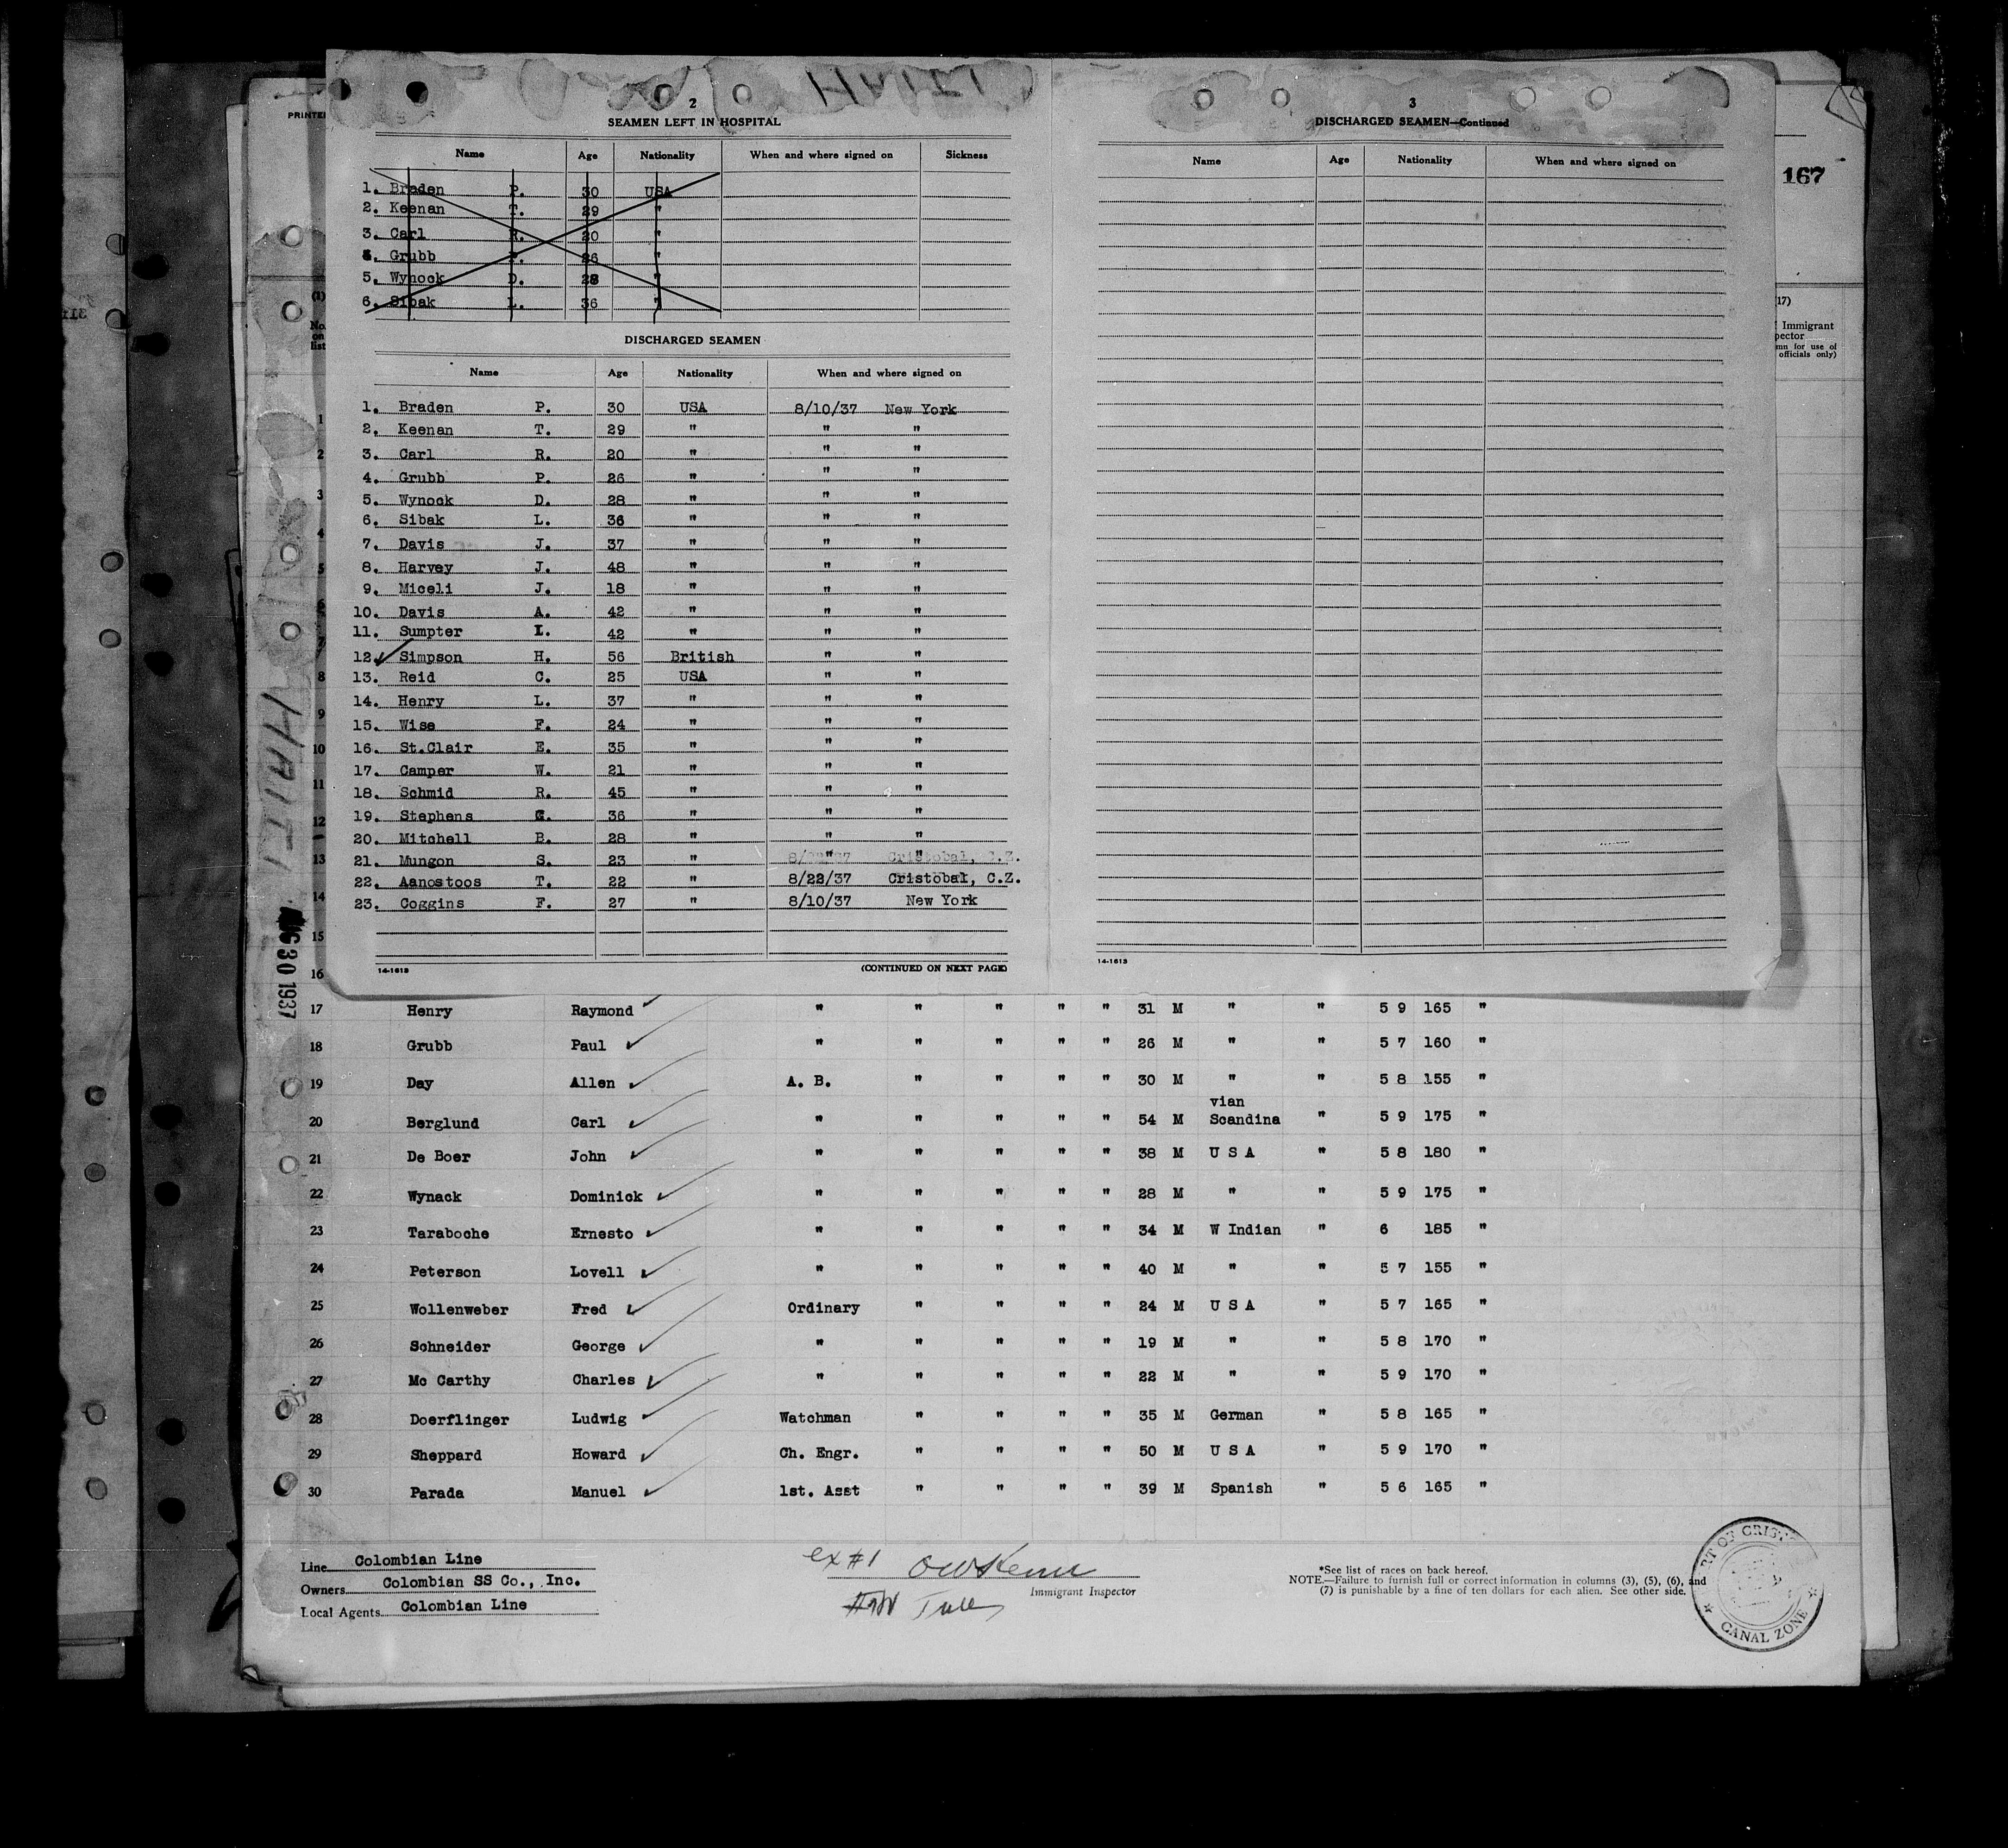 HAITI
2
SEAMEN LEFT IN HOSPITAL
Name Age Nationality When and where signed on Sickness
1. Braden P. 30 USA
2. Keenan T. 29 "
3. Carl R. 20 "
4. Grubb P. 26 "
5. Wynock D. 28 "
6. Sibak L. 36 "
DISCHARGED SEAMEN
Name Age Nationality When and where signed on
1. Braden P. 30 USA 8/10/37 New York
2. Keenan T. 29 " " "
3. Carl R. 20 " " "
4. Grubb P. 26 " " "
5. Wynock D. 28 " " "
6. Sibak L. 36 " " "
7. Davis J. 37 " " "
8. Harvey J. 48 " " "
9. Miceli J. 18 " " "
10. Davis A. 42 " " "
11. Sumpter L. 42 " " "
12. Simpson H. 56 British " "
13. Reid C. 25 USA " "
14. Henry L. 37 " " "
15. Wise F. 24 " " "
16. St.Clair E. 35 " " "
17. Camper W. 21 " " "
18. Schmid R. 45 " " "
19. Stephens G. 36 " " "
20. Mitchell B. 28 " " "
21. Mungon S. 23 " " "
22. Aanostoos T. 22 " 8/22/37 Cristobal, C.Z.
23. Coggins F. 27 " 8/10/37 New York
14-1613 (CONTINUED ON NEXT PAGE)
3
DISCHARGED SEAMEN—Continued
Name Age Nationality When and where signed on
14-1613
PRINTE
167
(3)
No.
on
list
(17)
Immigrant
pector
mn for use of
officials only)
1
2
3
4
5
6
7
8
9
10
11
12
13
14
15
16
HAITI
AUG 30 1937
17 Henry Raymond " " " " " 31 M " " 5 9 165 "
18 Grubb Paul " " " " " 26 M " " 5 7 160 "
19 Day Allen A. B. " " " " 30 M " " 5 8 155 "
vian
20 Berglund Carl " " " " " 54 M Scandina " 5 9 175 "
21 De Boer John " " " " " 38 M U S A " 5 8 180 "
22 Wynack Dominick " " " " " 28 M " " 5 9 175 "
23 Taraboche Ernesto " " " " " 34 M W Indian " 6 185 "
24 Peterson Lovell " " " " " 40 M " " 5 7 155 "
25 Wollenweber Fred Ordinary " " " " 24 M U S A " 5 7 165 "
26 Schneider George " " " " " 19 M " " 5 8 170 "
27 Mc Carthy Charles " " " " " 22 M " " 5 9 170 "
28 Doerflinger Ludwig Watchman " " " " 35 M German " 5 8 165 "
29 Sheppard Howard Ch. Engr. " " " " 50 M U S A " 5 9 170 "
30 Parada Manuel 1st. Asst " " " " 39 M Spanish " 5 6 165 "
Line Colombian Line
Owners Colombian SS Co., Inc.
Local Agents Colombian Line
ex #1
Immigrant Inspector
*See list of races on back hereof.
NOTE.—Failure to furnish full or correct information in columns (3), (5), (6), and
(7) is punishable by a fine of ten dollars for each alien. See other side.
CANAL ZONE